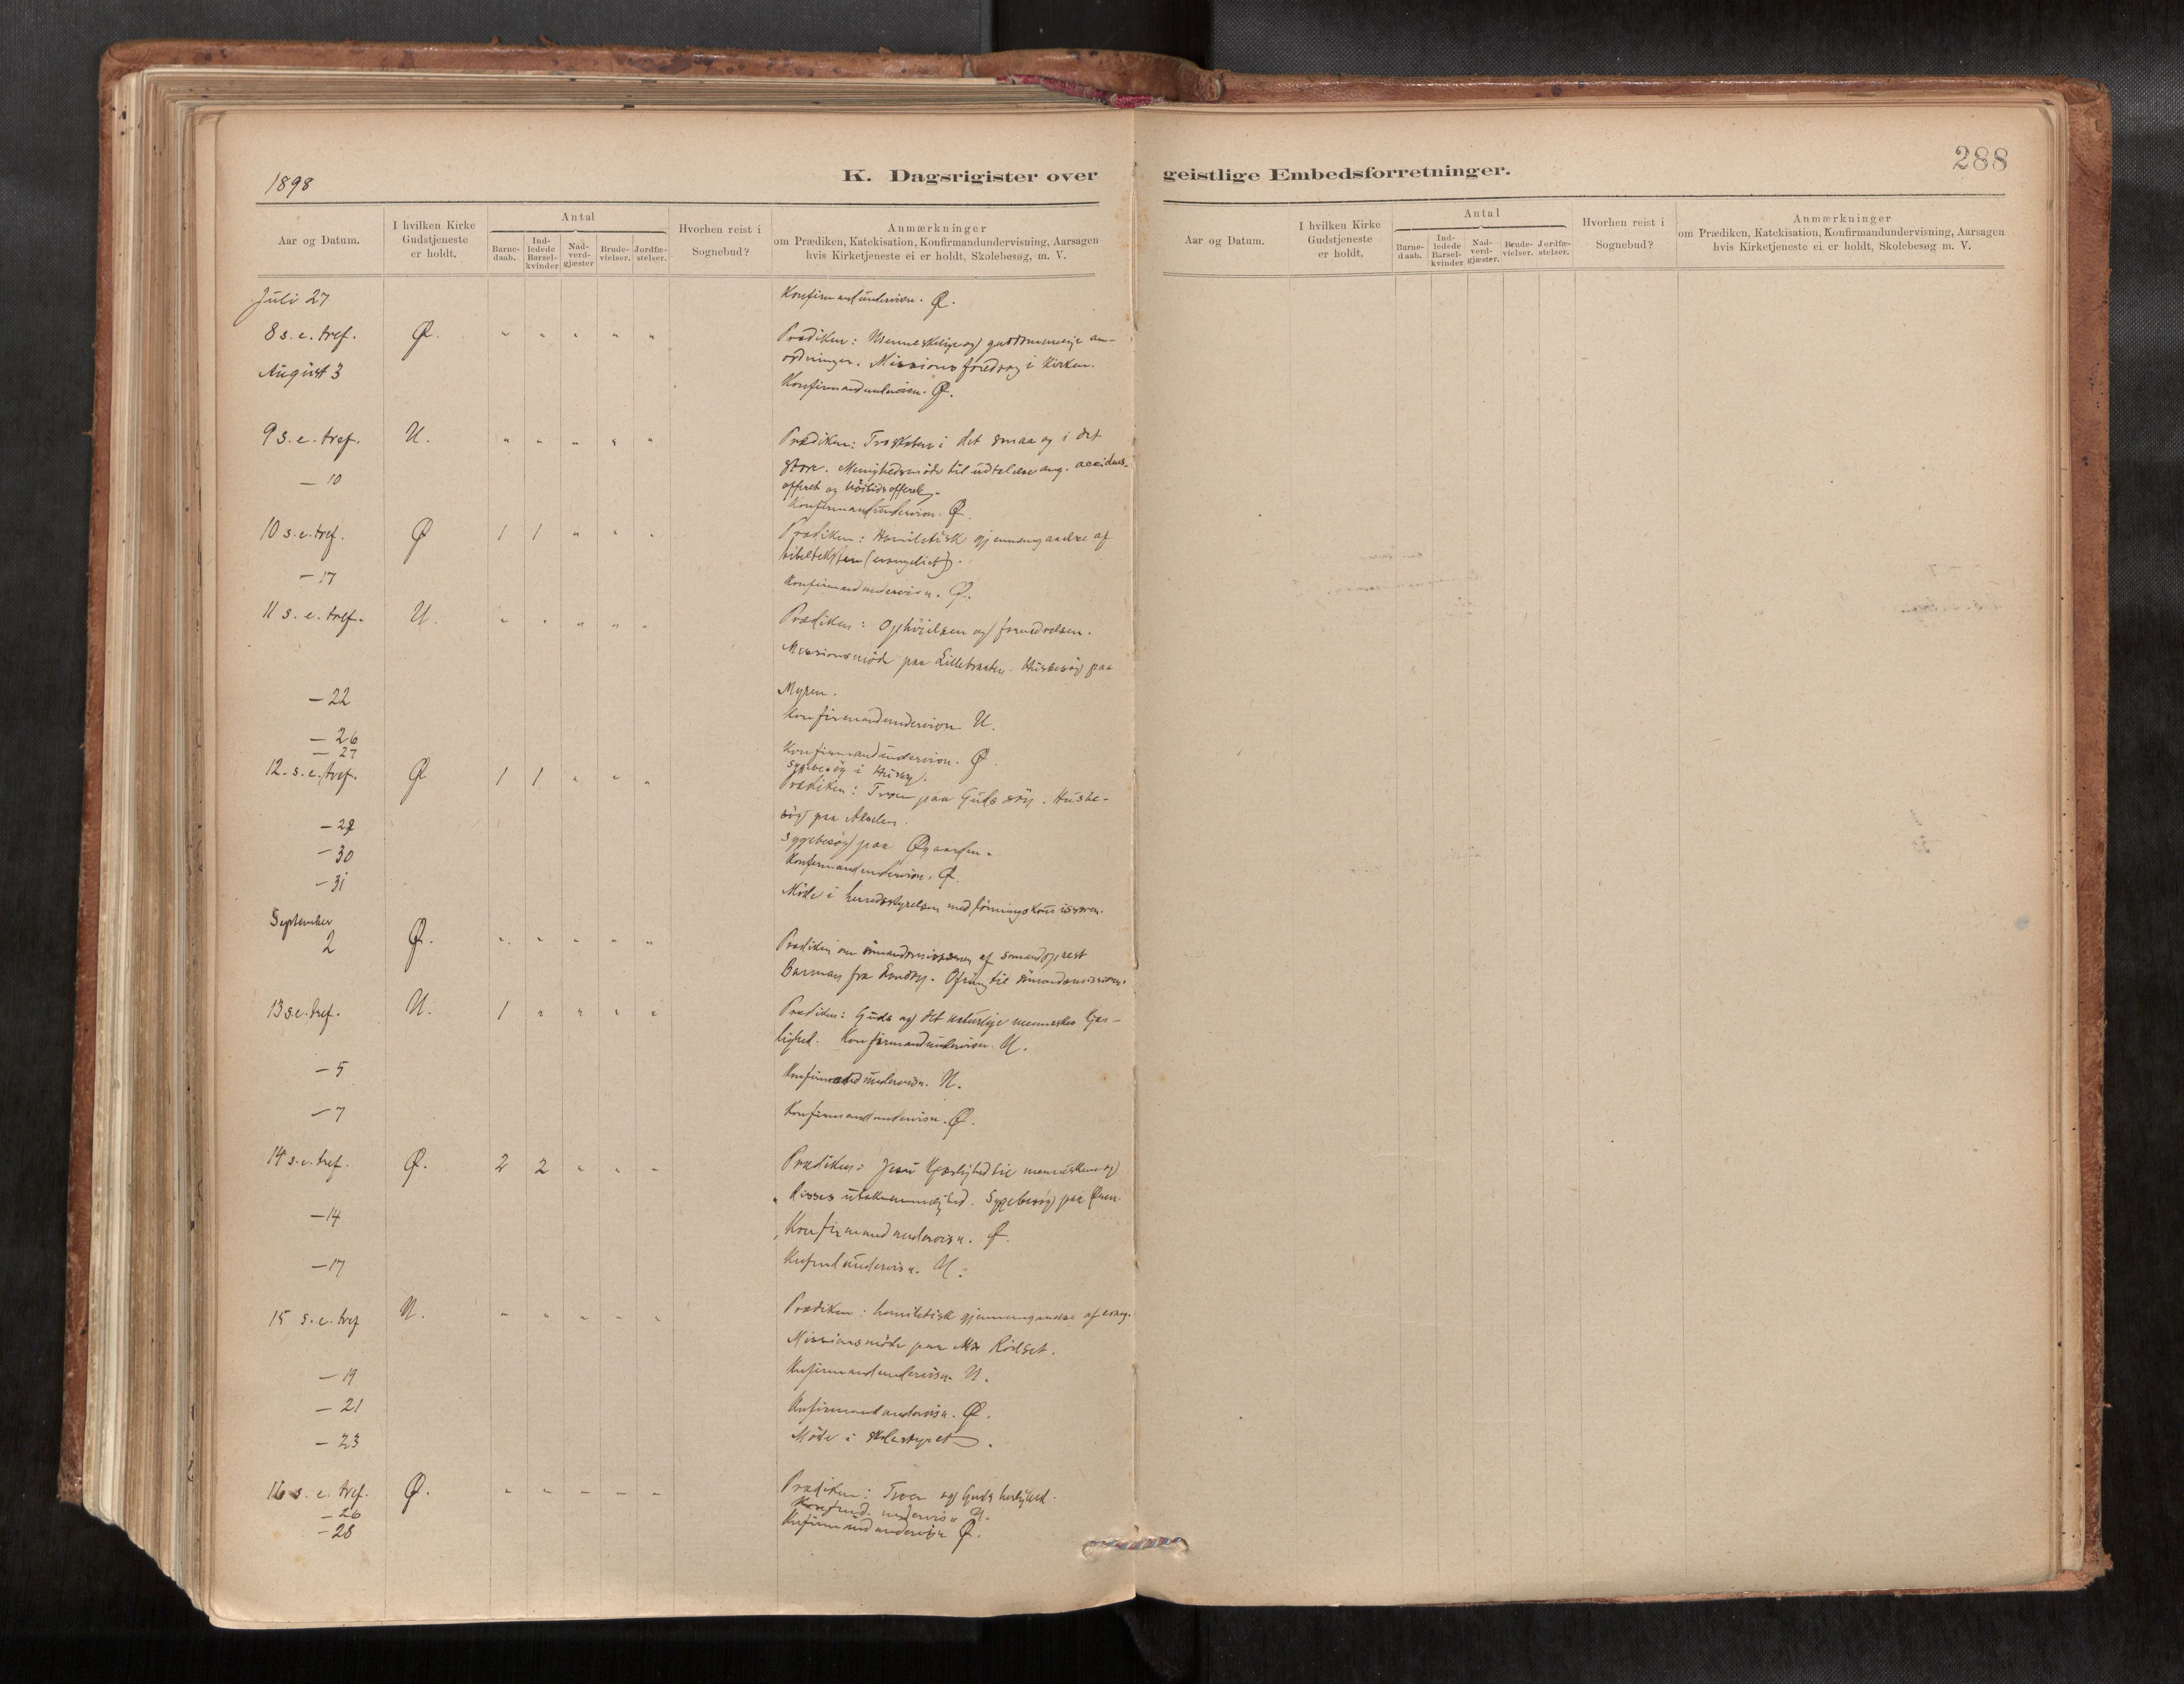 1898
K. Dagsrigister over
Aar og Datum.
I hvilken Kirke
Gudstjeneste
er holdt.
Antal
Barne-
daab.
Ind-
ledede
Barsel-
kvinder
Nad-
verd-
gjæster
Brude-
vielser.
Jordfæ-
stelser.
Hvorhen reist i
Sognebud?
Anmærkninger
om Prædiken, Katekisation, Konfirmandundervisning, Aarsagen
hvis Kirketjeneste ei er holdt, Skolebesøg, m. V.
Juli 27 Konfirmandundervisn. Ø.
8 s. e. tref. Ø. " " " " " Prædiken: Menneskelige og guddommelige an-
ordninger. Missionsforedrag i Kirken.
August 3 Konfirmandundervisn. Ø.
9 s. e. tref. U. " " " " " Prædiken: Troskaben i det smaa og i det
store. Menighedsmöde til udtalelse ang. accidens-
offeret og höitidsofferet.
— 10 Konfirmandundervisn. Ø.
10 s. e. tref. Ø 1 1 " " " Prædiken: Homiletisk gjennemgaaelse af
bibelteksten (evangeliet).
— 17 Konfirmandundervisn. Ø.
11 s. e. tref. U. " " " " " Prædiken: Ophöielsen og fornedrelsen.
Missionsmöde paa Husbesög paa
Myren.
— 22 Konfirmandundervisn. U.
— 26 Konfirmandundervisn. Ø.
— 27 Sygebesög i
12. s. e. tref. Ø 1 1 " " " Prædiken: Troen paa Guds sön. Husbe-
sög paa
— 29 Sygebesög paa Øgaarden.
— 30 Konfirmandundervisn. Ø.
— 31 Möde i herredsstyrelsen med lönningskommissionen.
September
2 Ø. " " " " " Prædiken om sömandsmissionen af sömandsprest
fra London. Ofring til sömandsmissionen.
13 s. e. tref. U. 1 " " " " Prædiken: Guds og det naturlige menneskes kjær-
lighed. Konfirmandundervisn. U.
— 5 Konfirmandundervisn. U.
— 7 Konfirmandundervisn. Ø.
14 s. e. tref. Ø. 2 2 " " " Prædiken: Jesu Kjærlighed til menneskene og
disses utaknemmelighed. Sygebesög paa
— 14 Konfirmandundervisn. Ø.
— 17 Knfmdundervisn. U.
15 s. e. tref U. " " " " " Prædiken: homiletisk gjennemgaaelse af evang.
Missionsmöde paa Rödset.
— 19 Knfirmandundervisn. U.
— 21 Knfirmandundervisn. Ø.
— 23 Möde i skolestyret.
16 s. e. tref. Ø. " " " " " Prædiken: Troen og Guds herlighed.
— 26 Konfmd. undervisn U.
— 28 Knfirmandundervisn Ø.
288
geistlige Embedsforretninger.
Aar og Datum.
I hvilken Kirke
Gudstjeneste
er holdt.
Antal
Barne-
daab.
Ind-
ledede
Barsel-
kvinder
Nad-
verd-
gjæster.
Brude-
vielser.
Jordfæ-
stelser.
Hvorhen reist i
Sognebud?
Anmærkninger
om Prædiken, Katekisation, Konfirmandundervisning, Aarsagen
hvis Kirketjeneste ei er holdt, Skolebesøg m. V.